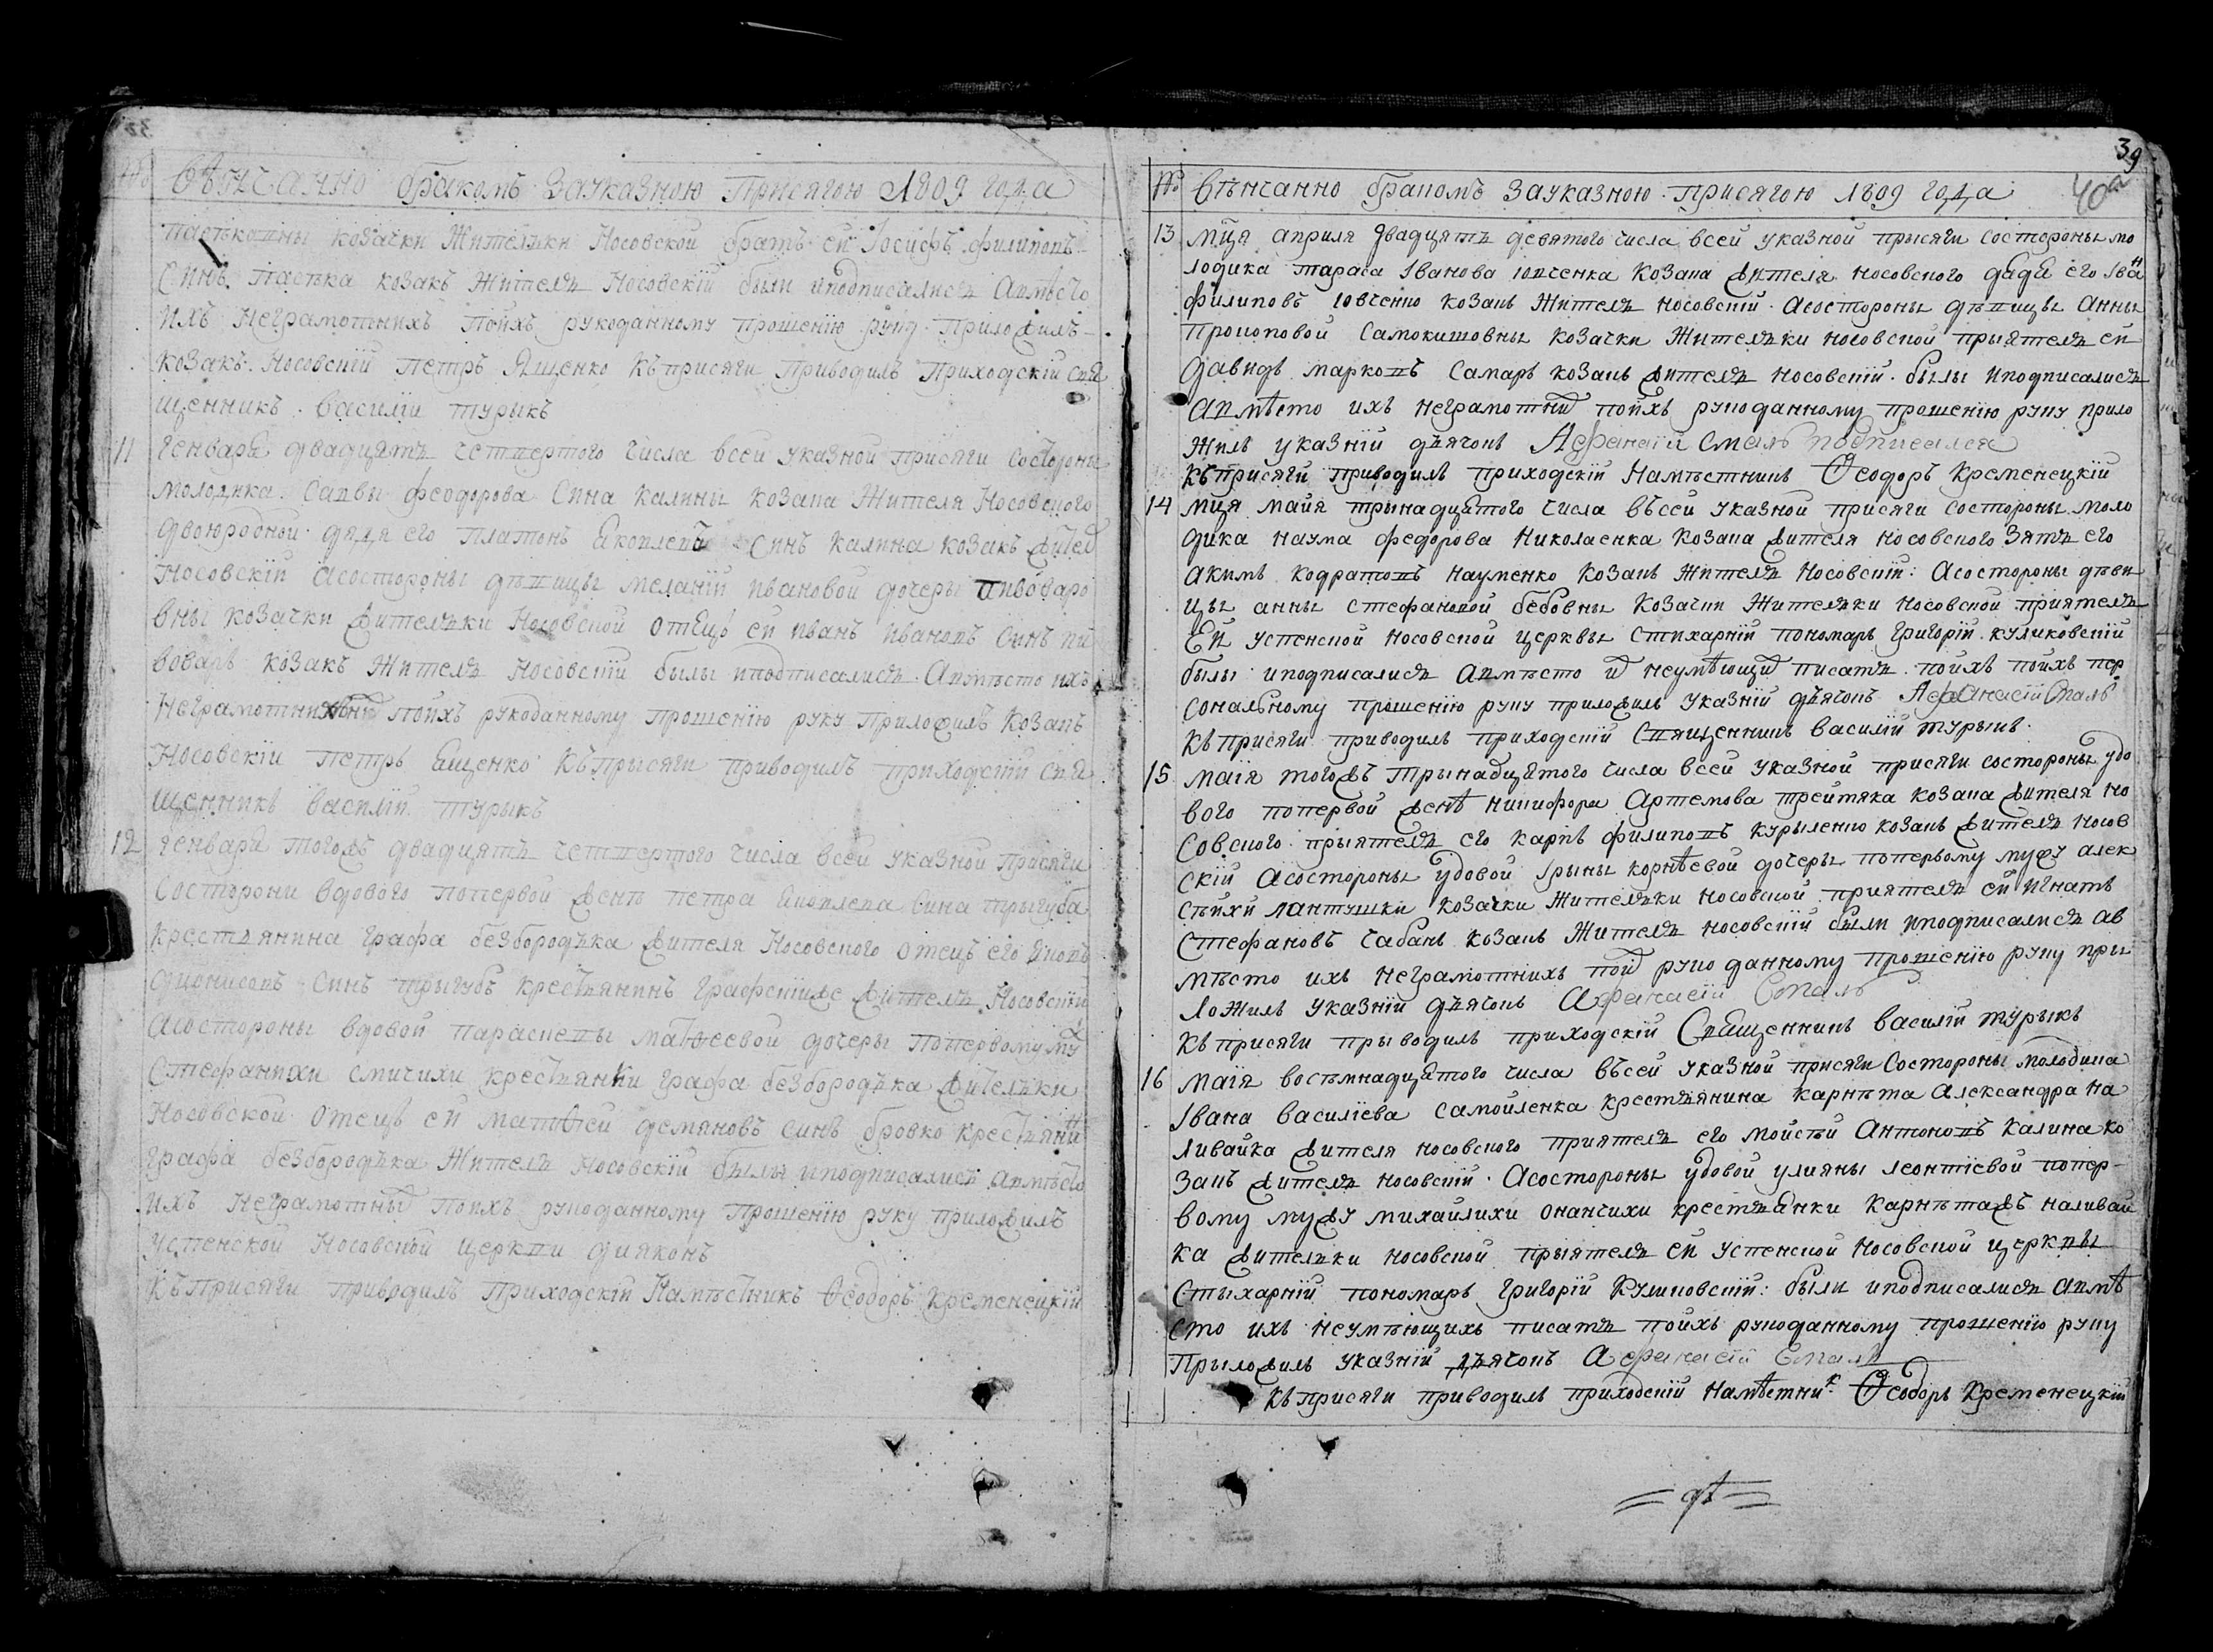 № вѣнчанно бракомъ зауказною присягою 1809 года
пастѣкавны козачки жителки Носовской братъ ей Іосифъ филиповъ
синъ пастѣка козакъ жителъ Носовскій были иподписалисъ авмѣсто
ихъ неграмотнихъ поихъ рукоданному прошенію руку приложилъ
козакъ Носовскій петръ Ященко Къприсяги приводилъ приходскій свя
щенникъ василій турыкъ
11 генваря двадцятъ четвертого числа всей указной присяги состороны
молодика савви феодорова сина калины козака жителя Носовского
двоюродной дядя его платонъ яковлевъ синъ калина козакъ жител
Носовскій асостороны дѣвицы меланій ивановой дочеры пивовaро
вны козачки жителки Носовской отецъ ей иванъ ивановъ синъ пи
воваръ козакъ жителъ носовскій былы иподписалисъ авмѣсто ихъ
неграмотних поихъ рукоданному прошенію руку приложилъ козакъ
Носовскій петръ ященко къпрысяги приводилъ приходскій свя
щенникъ василій турыкъ
12 генваря тогожъ двадцятъ четвертого числа всей указной присяги
состорони вдового попервой женѣ петра яковлева сина трыгуба
крестъянина графа безбородъка жителя Носовского отецъ его яковъ
дионисовъ синъ трыгубъ крестъянинъ графскій же жителъ Носовскій
асостороны вдовой параскевы матѳеевой дочеры попервому му
стефанихи смичихи крестъянки графа безбородъка жителъки
Носовской отецъ ей матѳей демяновъ синъ бровко крестъянин
графа безбородъка жителъ носовскій былы иподписалисъ авмѣсто
ихъ неграмотных поихъ рукоданному прошенію руку приложилъ
успенской Носовской церкви дияконъ
Къприсяги приводилъ приходскій Намѣстникъ Ѳеодоръ Кременецкій
39
40а
№ вѣнчанно бракомъ зауказною присягою 1809 года
13 мця априля двадцятъ девятого числа всей указной прысяги состороны мо
лодика тараса Іванова ювченка козака жителя носовского дядя его Іван
филиповъ ювченко козакъ жителъ носовскій асостороны дѣвицы анны
прокоповой самокишовны козачки жителъки носовской прыятелъ ей
давидъ марковъ самаръ козакъ жителъ носовскій былы иподписалисъ
авмѣсто ихъ неграмотних поихъ рукоданному прошенію руку прило
жилъ указній дъячокъ Афанасій Смалъ подписался
къприсяги приводилъ приходскій Намѣстникъ Ѳеодоръ Кременецкій
14 мця майя трынадцятого числа въсей указной присяги состороны моло
дика наума федорова Николаенка козака жителя носовского зятъ его
акимъ кодратовъ науменко козакъ жителъ носовскій асостороны дѣви
цы анны стефановой бебовны козачки жителъки носовской приятелъ
ей успенской носовской церквы стихарній пономаръ григорій куликовскій
былы иподписалисъ авмѣсто их неумѣющих писатъ поихъ поихъ пер
сональному прошенію руку приложилъ указній дъячокъ Афанасій Смалъ
къприсяги приводилъ приходскій священникъ василій турыкъ
15 маія тогожъ трынадцятого числа всей указной присяги состороны удо
вого попервой женѣ никифора артемова трейтяка козака жителя но
совского прыятелъ его карпъ филиповъ курыленко козакъ жителъ носов
скій асостороны удовой Ірыны корнѣевой дочеры попервому мужу алек
сѣихи лантушки козачки жителъки носовской приятелъ ей игнатъ
стефановъ чабанъ козакъ жителъ носовскій были иподписалисъ ав
мѣсто ихъ неграмотнихъ поих рукоданному прошенію руку при
ложилъ указній дъячокъ афанасій Смалъ
къприсяги прыводилъ приходскій священникъ василій турыкъ
16 маія востьмнадцятого числа въсей указной присяги состороны молодика
Івана василіева самойленка крестъянина карнѣта александра на
ливайка жителя носовского приятелъ его мойсѣй антоновъ калина ко
закъ жителъ носовскій асостороны удовой улияны леонтіевой попер
вому мужу михайлихи онанчихи крестъянки карнѣтажъ наливай
ка жителъки носовской прыятелъ ей успенской носовской церквы
стыхарній пономаръ григорій куликовскій былы иподписалисъ авмѣ
сто ихъ неумѣющихъ писатъ поихъ рукоданному прошенію руку
прыложилъ указній дъячокъ афанасій Смалъ
къприсяги приводилъ приходскій намѣстник Ѳеодоръ Кременецкій